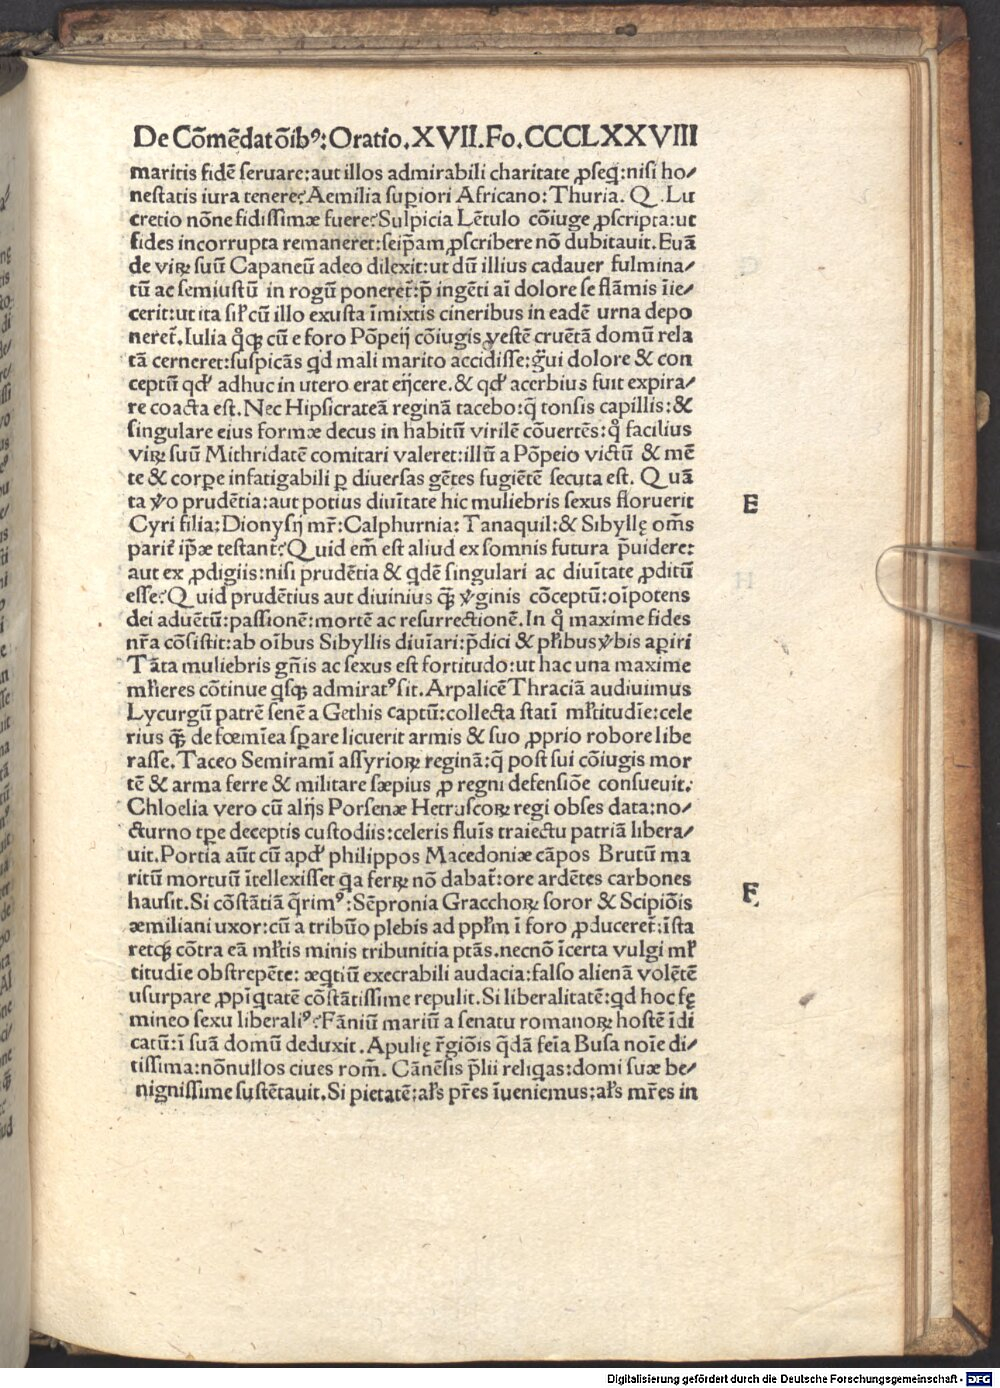 De Cõmẽdatõibꝰ: Oratio. XVII. Fo. CCCLXXVIII
maritis fidẽ seruare: aut illos admirabili charitate ꝓseq̃: nisi ho⸗
nestatis iura tenere? Aemilia supiori Africano: Thuria. Q. Lu
cretio nõne fidissimæ fuere? Sulpicia Lẽtulo cõiuge ꝓscripta: ut
fides incorrupta remaneret: seip̃am ꝓscribere nõ dubitauit. Euã
de viꝝ suũ Capaneũ adeo dilexit: ut dũ illius cadauer fulmina⸗
tũ ac semiustũ in rogũ poneret̃: p̃ ingẽti aĩ dolore se flãmis ĩie⸗
cerit: ut ita sił cũ illo exusta ĩmixtis cineribus in eadẽ urna depo
neret̃. Iulia q̊qꝫ cũ e foro Põpeij cõiugis vestẽ cruẽtã domũ rela
tã cerneret: suspicãs qd mali marito accidisse: g̃ui dolore & con
ceptũ qđ adhuc in utero erat eijcere. & qđ acerbius fuit expira⸗
re coacta est. Nec Hipsicrateã reginã tacebo: q̃ tonsis capillis: &
singulare eius formæ decus in habitũ virilẽ cõuertẽs: q̊ facilius
viꝝ suũ Mithridatẽ comitari valeret: illũ a Põpeio victũ & mẽ
te & corpe infatigabili ꝑ diuersas gẽtes fugiẽtẽ secuta est. Quã
ta ṽo prudẽtia: aut potius diuĩtate hic muliebris sexus floruerit
E
Cyri filia: Dionysij mr̃: Calphurnia: Tanaquil: & Sibyllę om̃s
parit̃ ip̃æ testant̃? Quid em̃ est aliud ex somnis futura p̃uidere:
aut ex ꝓdigiis: nisi prudẽtia & qdẽ singulari ac diuĩtate ꝓditũ
esse? Quid prudẽtius aut diuinius q̃ꝫ ṽginis cõceptũ: oĩpotens
dei aduẽtũ: passionẽ: mortẽ ac resurrectionẽ. In q̊ maxime fides
nr̃a cõsistit: ab oĩbus Sibyllis diuĩari: p̃dici & płibus ṽbis apiri
Tãta muliebris gñis ac sexus est fortitudo: ut hac una maxime
młieres cõtinue qsqꝫ admiratꝰ sit. Arpalicẽ Thraciã audiuimus
Lycurgũ patrẽ senẽ a Gethis captũ: collecta statĩ młtitudĩe: cele
rius q̃ꝫ de fœmĩea sꝑare licuerit armis & suo ꝓprio robore libe
rasse. Taceo Semiramĩ assyrioꝝ reginã: q̃ post sui cõiugis mor
tẽ & arma ferre & militare sæpius ꝓ regni defensiõe consueuit:
Chloelia vero cũ alijs Porsenæ Hetruscoꝝ regi obses data: no⸗
cturno tꝑe deceptis custodiis: celeris fluĩs traiectu patriã libera⸗
uit. Portia aũt cũ apđ philippos Macedoniæ cãpos Brutũ ma
ritũ mortuũ ĩtellexisset qa ferꝝ nõ dabat̃: ore ardẽtes carbones
F
hausit. Si cõstãtiã q̃rimꝰ: Sẽpronia Gracchoꝝ soror & Scipiõis
æmiliani uxor: cũ a tribũo plebis ad ppłm ĩ foro ꝓduceret̃: ĩsta
retqꝫ cõtra eã młtis minis tribunitia ptãs. necnõ ĩcerta vulgi mł
titudĩe obstrepẽte: æqtiũ execrabili audacia: falso alienã volẽtẽ
usurpare ꝓpĩqtatẽ cõstãtissime repulit. Si liberalitatẽ: qd hoc fę
mineo sexu liberaliꝰ? Fãniũ mariũ a senatu romanoꝝ hostẽ ĩdi
catũ: ĩ suã domũ deduxit. Apulię r̃giõis q̃dã feĩa Busa noĩe di⸗
tissima: nõnullos ciues rom̃. Cãnẽsis p̃lii reliqas: domi suæ be⸗
nignissime sustẽtauit. Si pietatẽ: ał̃s pr̃es ĩueniemus: ał̃s mr̃es in
Digitalisierung gefördert durch die Deutsche Forschungsgemeinschaft - DFG